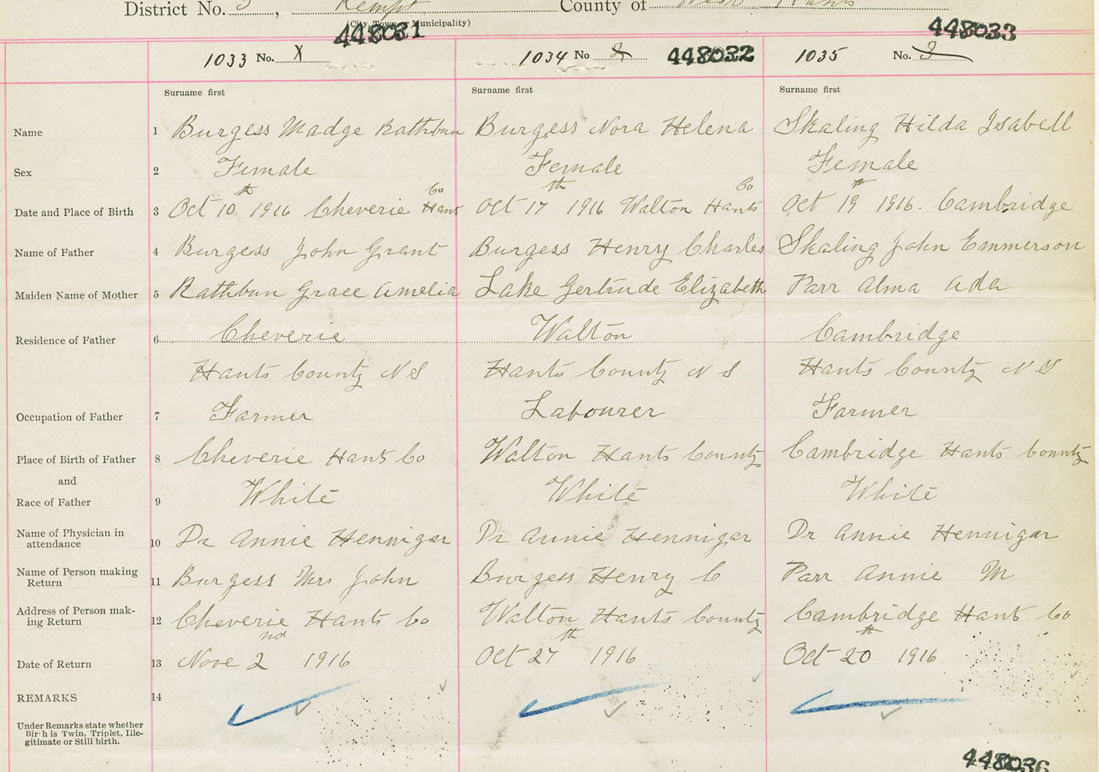 District No. 3, Kempt County of West Hants
(City, Town or Municipality)
448031 448033
1033 No. 1034 No 448032 1035 No. 3
Surname first Surname first Surname first
Name 1 Burgess Madge Rathbun Burgess Nora Helena Skaling Hilda Isabell
Sex 2 Female Female Female
Date and Place of Birth 3 Oct 10th 1916 Cheverie Hants Co Oct 17th 1916 Walton Hants Co Oct 19th 1916. Cambridge
Name of Father 4 Burgess John Grant Burgess Henry Charles Skaling John Emmerson
Maiden Name of Mother 5 Rathbun Grace Amelia Lake Gertrude Elizabeth Parr Alma Ada
Residence of Father 6 Cheverie Walton Cambridge
Hants County N S Hants County N S Hants County N S
Occupation of Father 7 Farmer Labourer Farmer
Place of Birth of Father 8 Cheverie Hants Co Walton Hants County Cambridge Hants County
and
Race of Father 9 White White White
Name of Physician in
attendance 10 Dr Annie Hennigar Dr Annie Hennigar Dr Annie Hennigar
Name of Person making
Return 11 Burgess Mrs John Burgess Henry C Parr Annie M
Address of Person mak-
ing Return 12 Cheverie Hants Co Walton Hants County Cambridge Hants Co
Date of Return 13 Nove 2nd 1916 Oct 27th 1916 Oct 20th 1916
REMARKS 14
Under Remarks state whether
Birth is Twin, Triplet, Ille-
gitimate or Still birth.
448036